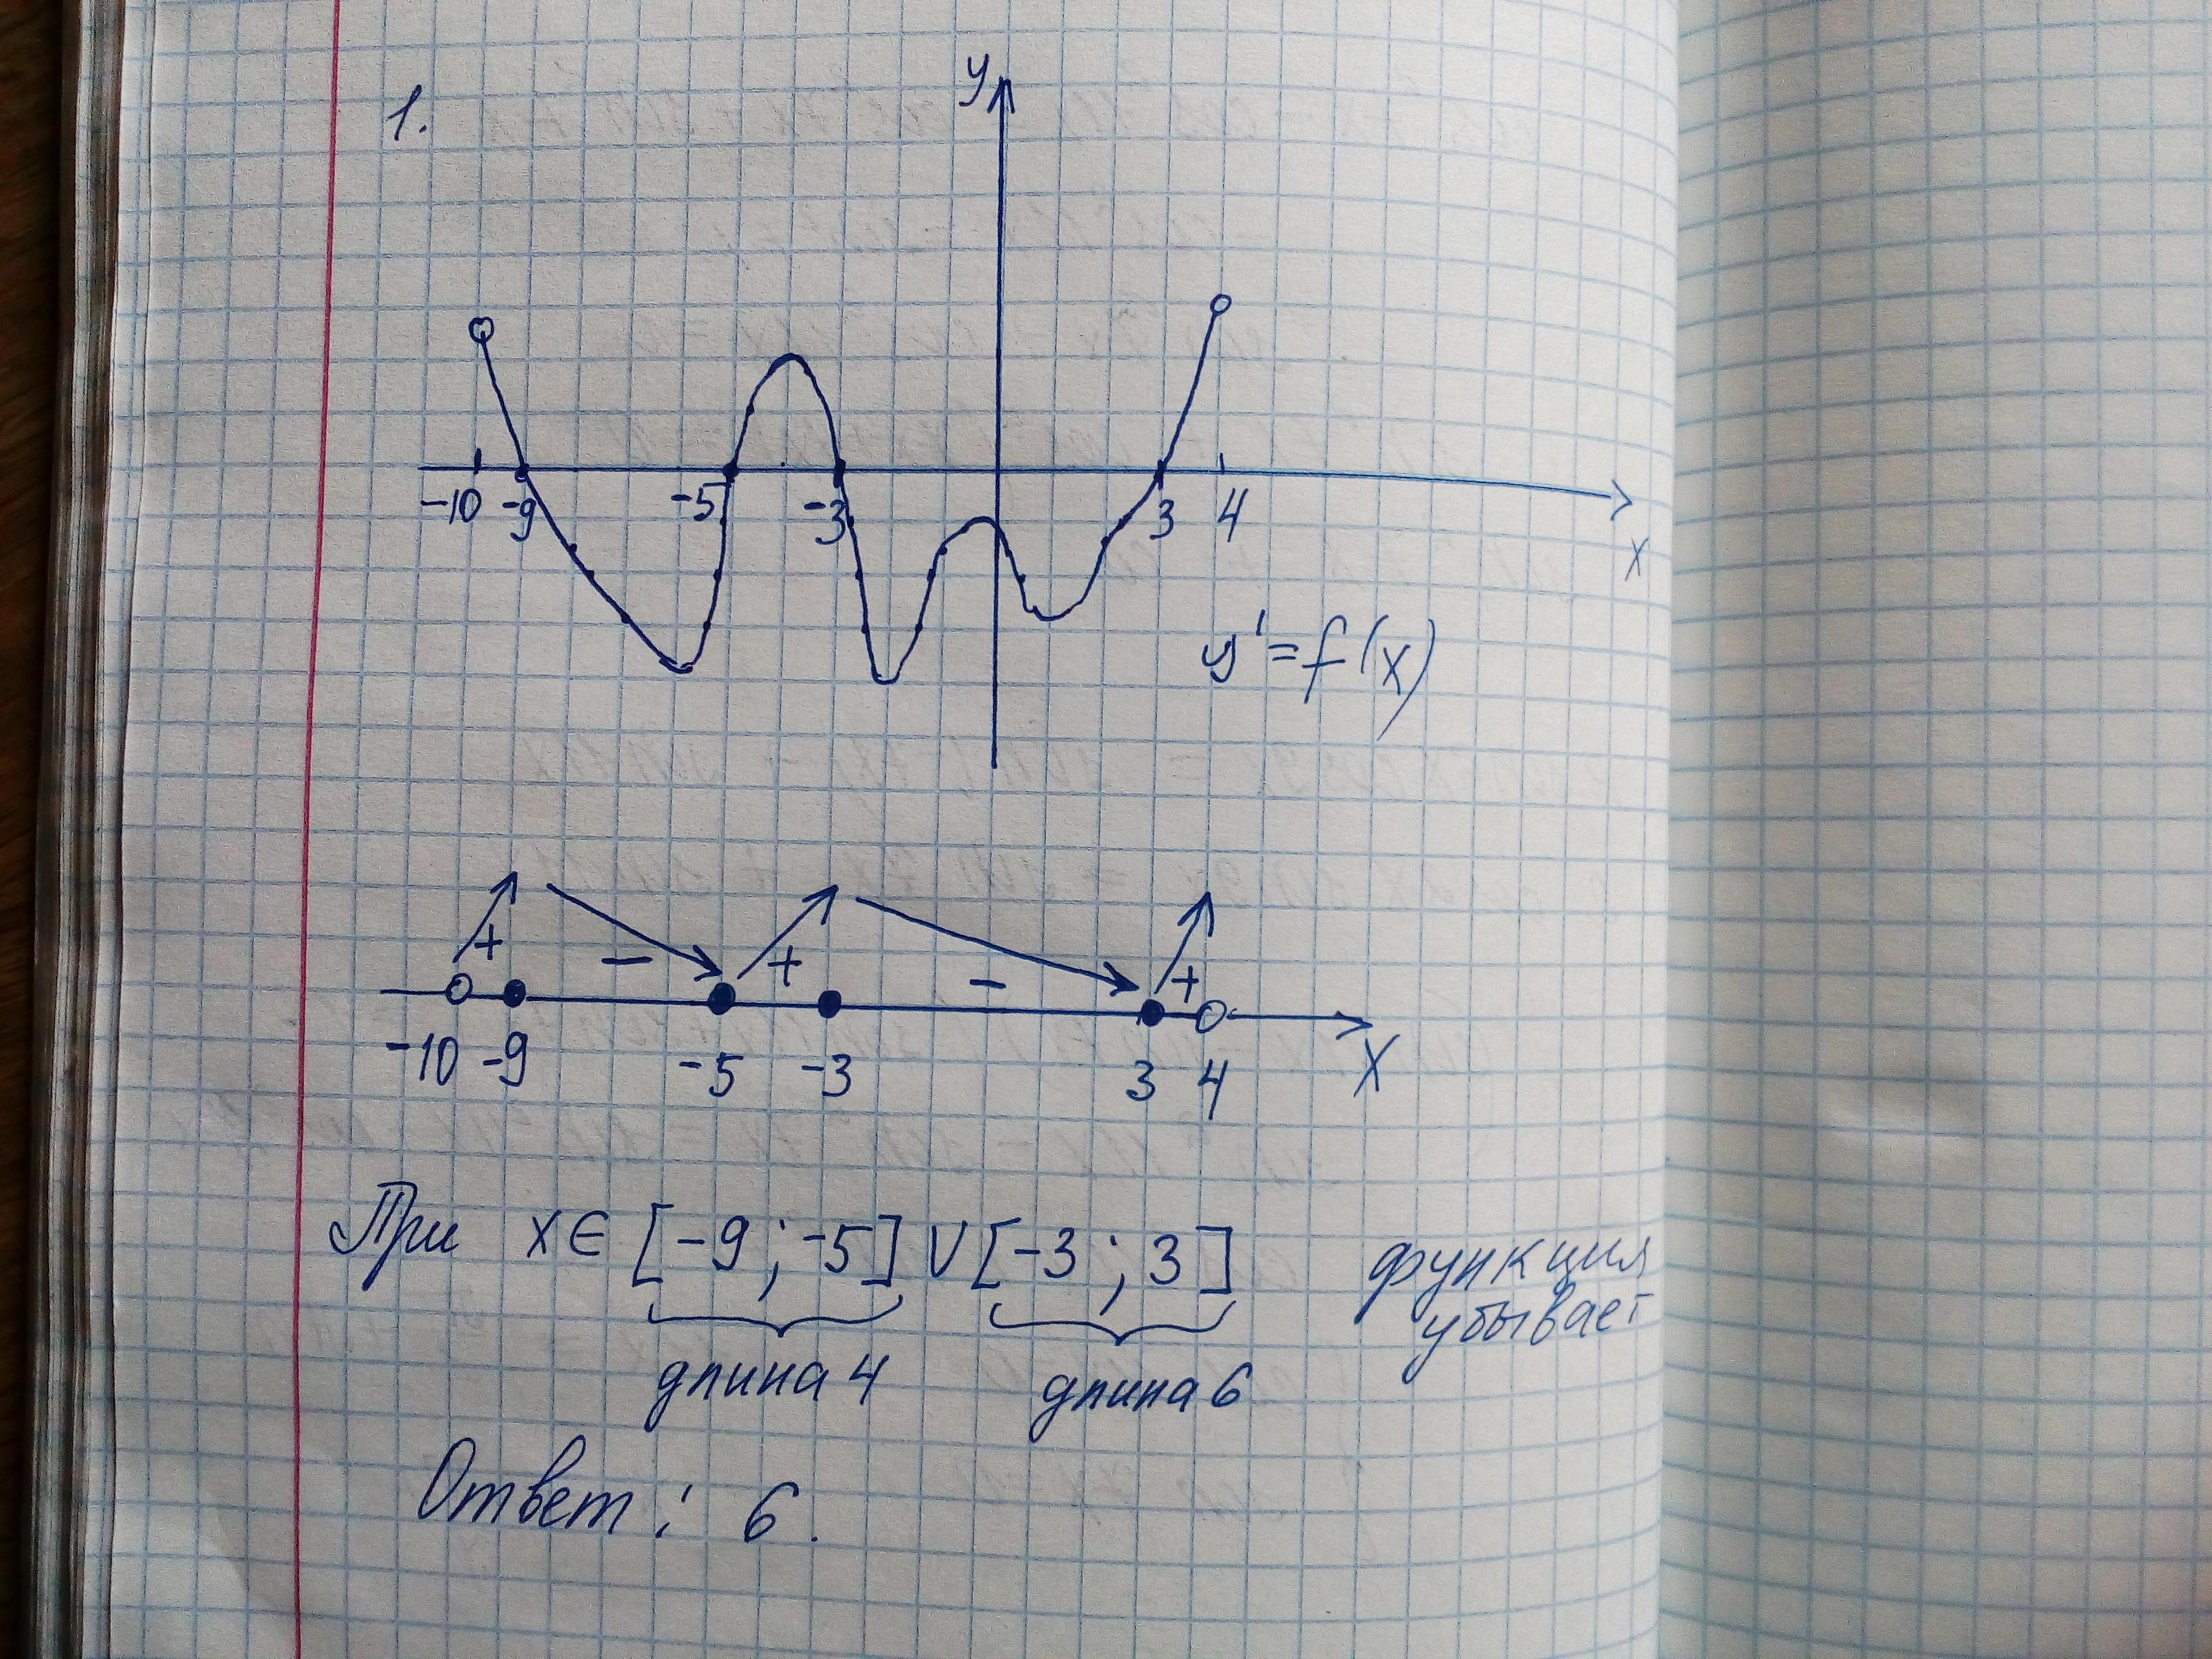 1.
y
-10 -9 -5 -3 3 4
x
y' = f(x)
+ − + − +
-10 -9 -5 -3 3 4 X
При x ∈ [-9; -5] ∪ [-3; 3] функция
убывает
длина 4 длина 6
Ответ: 6.